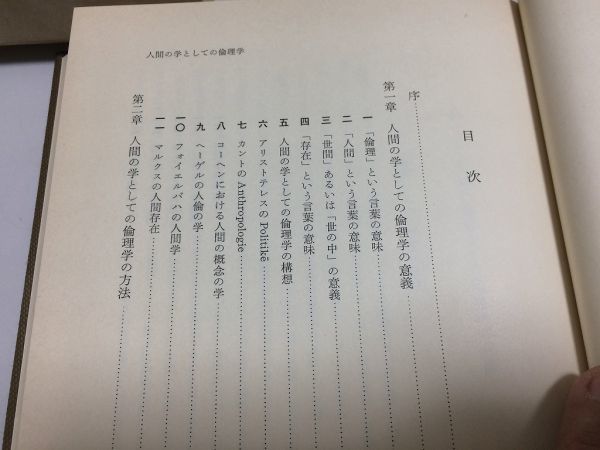 人間の学としての倫理学
目次
序
第一章 人間の学としての倫理学の意義
一 「倫理」という言葉の意味
二 「人間」という言葉の意味
三 「世間」あるいは「世の中」の意義
四 「存在」という言葉の意味
五 人間の学としての倫理学の構想
六 アリストテレスの Politikē
七 カントの Anthropologie
八 コーヘンにおける人間の概念の学
九 ヘーゲルの人倫の学
一〇 フォイエルバハの人間学
一一 マルクスの人間存在
第二章 人間の学としての倫理学の方法